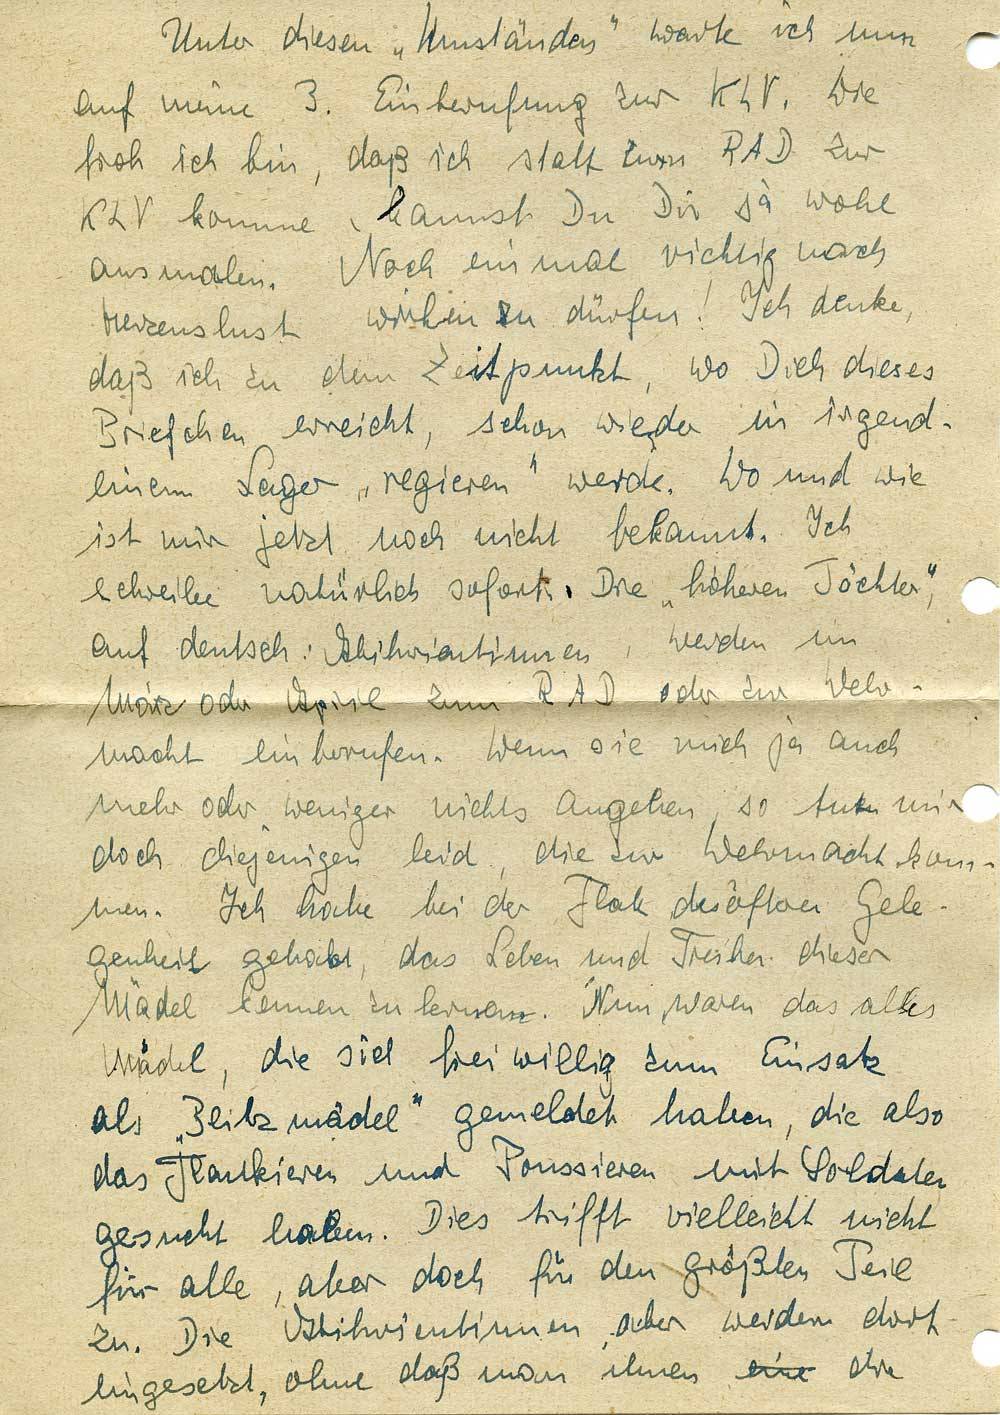 Unter diesen „Umständen" warte ich nun
auf meine 3. Einberufung zur KLV. Wie
froh ich bin, daß ich statt zum RAD zur
KLV komme, kannst Du Dir ja wohl
ausmalen. Noch einmal richtig nach
Herzenslust wirken zu dürfen! Ich denke,
daß ich zu dem Zeitpunkt, wo Dich dieses
Briefchen erreicht, schon wieder in irgend-
einem Lager „regieren" werde. Wo und wie
ist mir jetzt noch nicht bekannt. Ich
schreibe natürlich sofort. Die „höheren Töchter",
auf deutsch: Abiturientinnen, werden im
März oder April zum RAD oder zur Wehr-
macht einberufen. Wenn sie mich ja auch
mehr oder weniger nichts angehen, so tun mir
doch diejenigen leid, die zur Wehrmacht kom-
men. Ich habe bei der Flak desöfteren Gele-
genheit gehabt, das Leben und Treiben dieser
Mädel kennen zu lernen. Nun, waren das alles
Mädel, die sich freiwillig zum Einsatz
als „Blitzmädel" gemeldet haben, die also
das Flankieren und Poussieren mit Soldaten
gesucht haben. Dies trifft vielleicht nicht
für alle, aber doch für den größten Teil
zu. Die Abiturientinnen aber werden dort
eingesetzt, ohne daß man ihnen eine die